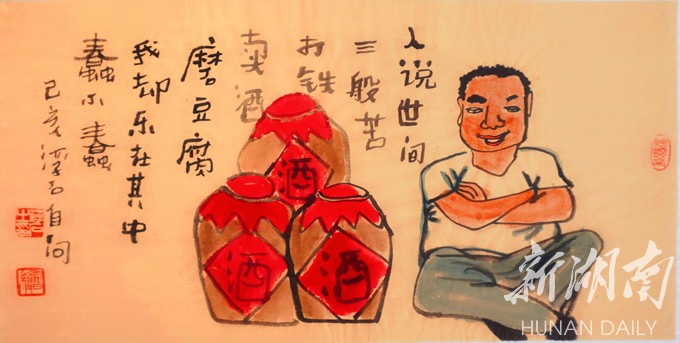 人说世间
三般苦
打铁
卖酒
磨豆腐
我却乐在其中
蠢不蠢
己亥浮石自问
酒
酒
酒
新湖南
HUNAN DAILY